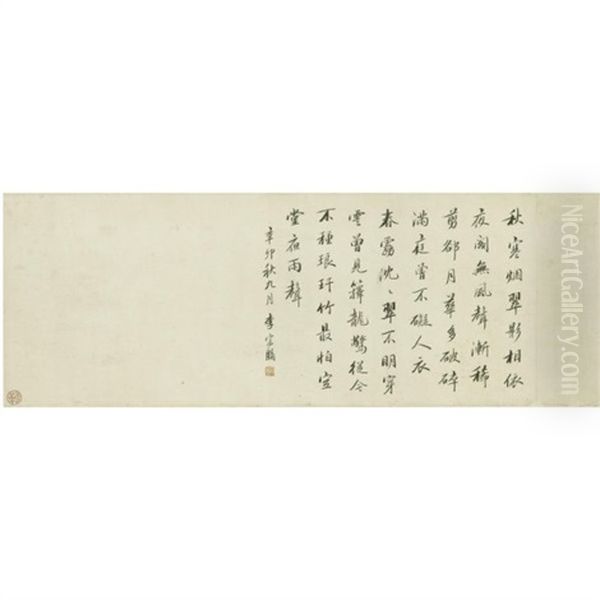 秋寒烟翠影相依
夜闌無風聲漸稀
剪郤月華多破碎
滿庭曾不礙人衣
春雷沈〻翠不明穿
雲曾見籜龍驚從今
不種琅玕竹最怕空
堂夜雨聲
辛卯秋九月 李宗
NiceArtGallery.com